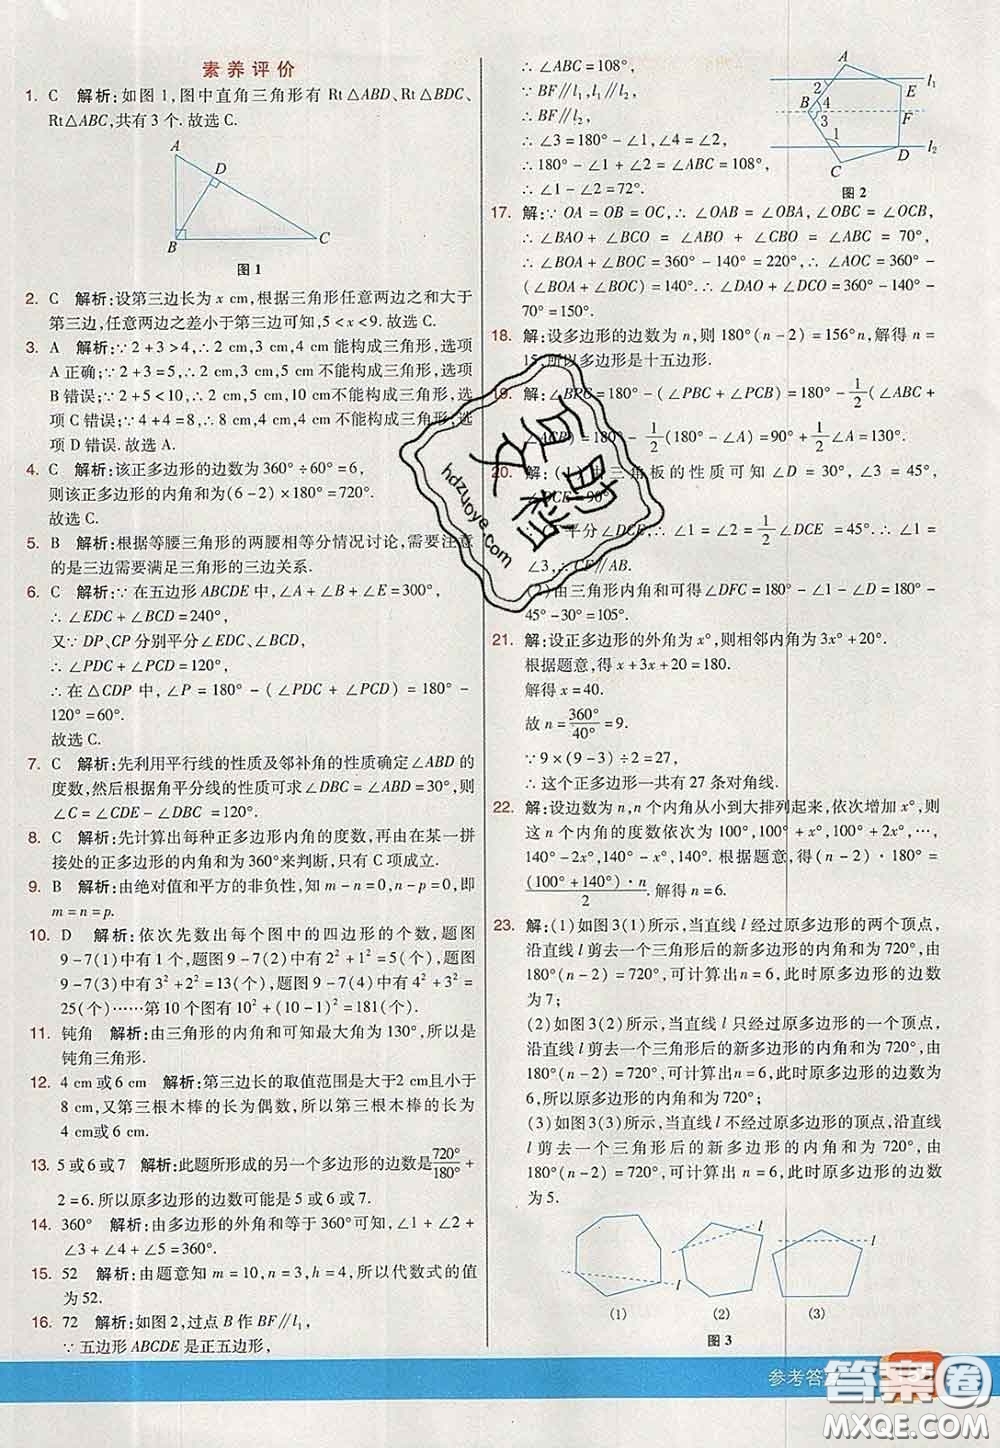 素养评价
1. C 解析:如图1,图中直角三角形有 Rt△ABD、Rt△BDC、
Rt△ABC,共有3个.故选C.
A
D
B
C
图1
2. C 解析:设第三边长为 x cm,根据三角形任意两边之和大于
第三边,任意两边之差小于第三边可知,5<x<9.故选C.
3. A 解析:∵2+3>4,∴2 cm,3 cm,4 cm能构成三角形,选项
A正确;∵2+3=5,∴2 cm,3 cm,5 cm不能构成三角形,选项
B错误;∵2+5<10,∴2 cm,5 cm,10 cm不能构成三角形,选
项C错误;∵4+4=8,∴8 cm,4 cm,4 cm不能构成三角形,选
项D错误.故选A.
4. C 解析:该正多边形的边数为360°÷60°=6,
则该正多边形的内角和为(6-2)×180°=720°.
故选C.
5. B 解析:根据等腰三角形的两腰相等分情况讨论,需要注意
的是三边需要满足三角形的三边关系.
6. C 解析:∵在五边形ABCDE中,∠A+∠B+∠E=300°,
∴∠EDC+∠BCD=240°,
又∵DP、CP分别平分∠EDC、∠BCD,
∴∠PDC+∠PCD=120°,
∴在△CDP中,∠P=180°-(∠PDC+∠PCD)=180°-
120°=60°.
故选C.
7. C 解析:先利用平行线的性质及邻补角的性质确定∠ABD的
度数,然后根据角平分线的性质可求出∠DBC=∠ABD=30°,则
∠C=∠CDE-∠DBC=120°.
8. C 解析:先计算出每种正多边形内角的度数,再由在某一拼
接处的正多边形的内角和为360°来判断,只有C项成立.
9. B 解析:由绝对值和平方的非负性,知m-n=0,n-p=0,即
m=n=p.
10. D 解析:依次先数出每个图中的四边形的个数,题图
9-7(1)中有1个,题图9-7(2)中有2²+1²=5(个),题图
9-7(3)中有3²+2²=13(个),题图9-7(4)中有4²+3²=
25(个)……第10个图有10²+(10-1)²=181(个).
11. 钝角 解析:由三角形的内角和可知最大角为130°,所以是
钝角三角形.
12. 4 cm或6 cm 解析:第三边长的取值范围是大于2 cm且小于
8 cm,又第三根木棒的长为偶数,所以第三根木棒的长为
4 cm或6 cm.
13. 5或6或7 解析:此题所形成的另一个多边形的边数是720°/180°
+2=6.所以原多边形的边数可能是5或6或7.
14. 360° 解析:由多边形的外角和等于360°可知,∠1+∠2+
∠3+∠4+∠5=360°.
15. 52 解析:由题意知m=10,n=3,h=4,所以代数式的值
为52.
16. 72 解析:如图2,过点B作BF∥l₁,
∵五边形ABCDE是正五边形,
∴∠ABC=108°,
∵BF∥l₁,l₁∥l₂,
∴BF∥l₂,
∴∠3=180°-∠1,∠4=∠2,
∴180°-∠1+∠2=∠ABC=108°,
∴∠1-∠2=72°.
A
2
E
l₁
B
4
3
F
1
D
l₂
C
图2
17. 解:∵OA=OB=OC,∴∠BAO=∠OBA,∠OBC=∠OCB,
∴∠BAO+∠BCO=∠ABO+∠CBO=∠ABC=70°,
∴∠BOA+∠BOC=360°-2×70°=220°,∴∠AOC=360°-
(∠BOA+∠BOC)=140°.∴∠DAO+∠DCO=360°-
∠D-∠AOC=150°.
18. 解:设多边形的边数为n,则180°(n-2)=156°n,解得n=
15,所以多边形是十五边形.
19. 解:∠BPC=180°-(∠PBC+∠PCB)=180°-1/2(∠ABC+
∠ACB)=180°-1/2(180°-∠A)=90°+1/2∠A=130°.
20. 解:(1)由三角板的性质可知∠D=30°,∠3=45°,
∠DCE=90°
平分∠DCE,∴∠1=∠2=1/2∠DCE=45°.∴∠1=
∠3,∴CF∥AB.
(2)由三角形内角和可得∠DFC=180°-∠1-∠D=180°-
45°-30°=105°.
21. 解:设正多边形的外角为x°,则相邻内角为3x°+20°.
根据题意,得x+3x+20=180.
解得x=40.
故n=360°/40°=9.
∵9×(9-3)÷2=27,
∴这个正多边形一共有27条对角线.
22. 解:设边数为n,n个内角从小到大排列起来,依次增加x°,则
这n个内角的度数依次为100°,100°+x°,100°+2x°,…,
140°-2x°,140°-x°,140°.根据题意,得(n-2)·180°=
(100°+140°)·n/2.解得n=6.
23. 解:(1)如图3(1)所示,当直线l经过原多边形的两个顶点,
沿直线l剪去一个三角形后的新多边形的内角和为720°,由
180°(n-2)=720°,可计算出n=6,此时原多边形的边数
为7;
(2)如图3(2)所示,当直线l只经过原多边形的一个顶点,
沿直线l剪去一个三角形后的新多边形的内角和为720°,由
180°(n-2)=720°,可计算出n=6,此时原多边形的边数
为6;
(3)如图3(3)所示,当直线l不经过原多边形的顶点,沿直线
l剪去一个三角形后的新多边形的内角和为720°,由
180°(n-2)=720°,可计算出n=6,此时原多边形的边数
为5.
l
l
l
(1)
(2)
(3)
图3
参考答
答案圈
MXQE.COM
hdzuoye.com